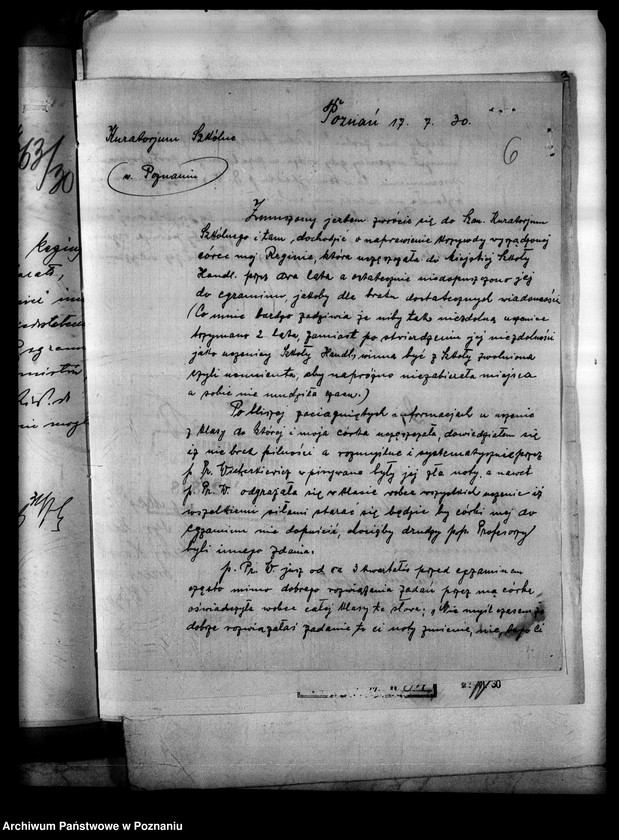 Poznań 17. 7. 30.
6
Kuratorjum Szkólne
w. Poznaniu
63/30
Zmuszony jestem zwrócić się do Szan. Kuratorjum
Szkólnego i tam, dochodzić o naprawienie krzywdy wyrządzonej
córce mej Reginie, która uczęszczała do Miejskiej Szkoły
Handl. przez dwa lata a ostatecznie niedopuszczono jej
do egzaminu, jakoby dla braku dostatecznych wiadomości
(Co mnie bardzo zadziwia że niby tako niezdolną uczenice
trzymano 2 lata, zamiast po stwierdzeniu jej niezdolności
jako uczenicy Szkoły Handl, winna być z Szkoły zwolniona
czyli usunienta, aby napróżno niezabierała miejsca
a sobie nie mudziła czasu.)
Po bliszej zaciągniętych informacjach u uczenic
z klasy do której i moja córka uczęszczała, dowiedziałem się
iż nie brak pilności a rozmyślne i systematycznie przez
p. Pr. wpisywane były jej złe noty. a nawet
p. Pr. W. odgrażała się w klasie wobec wszystkich uczenic iż
wszelkiemi siłami starać się będzie by córki mej do
egzaminu nie dopuścić, chociżby drudzy pp. Profesorzy
byli innego zdania.
p. Pr. W. już od ca 3 kwartału przed egzaminem
często mimo dobrego rozwiązania zadań przez mą córkę,
oświadczyła wobec całej klasy te słowa: "Nie myśl czasem że
dobrze rozwiązałaś zadanie to ci noty zmienie, nie, bo ja ci
30
Archiwum Państwowe w Poznaniu